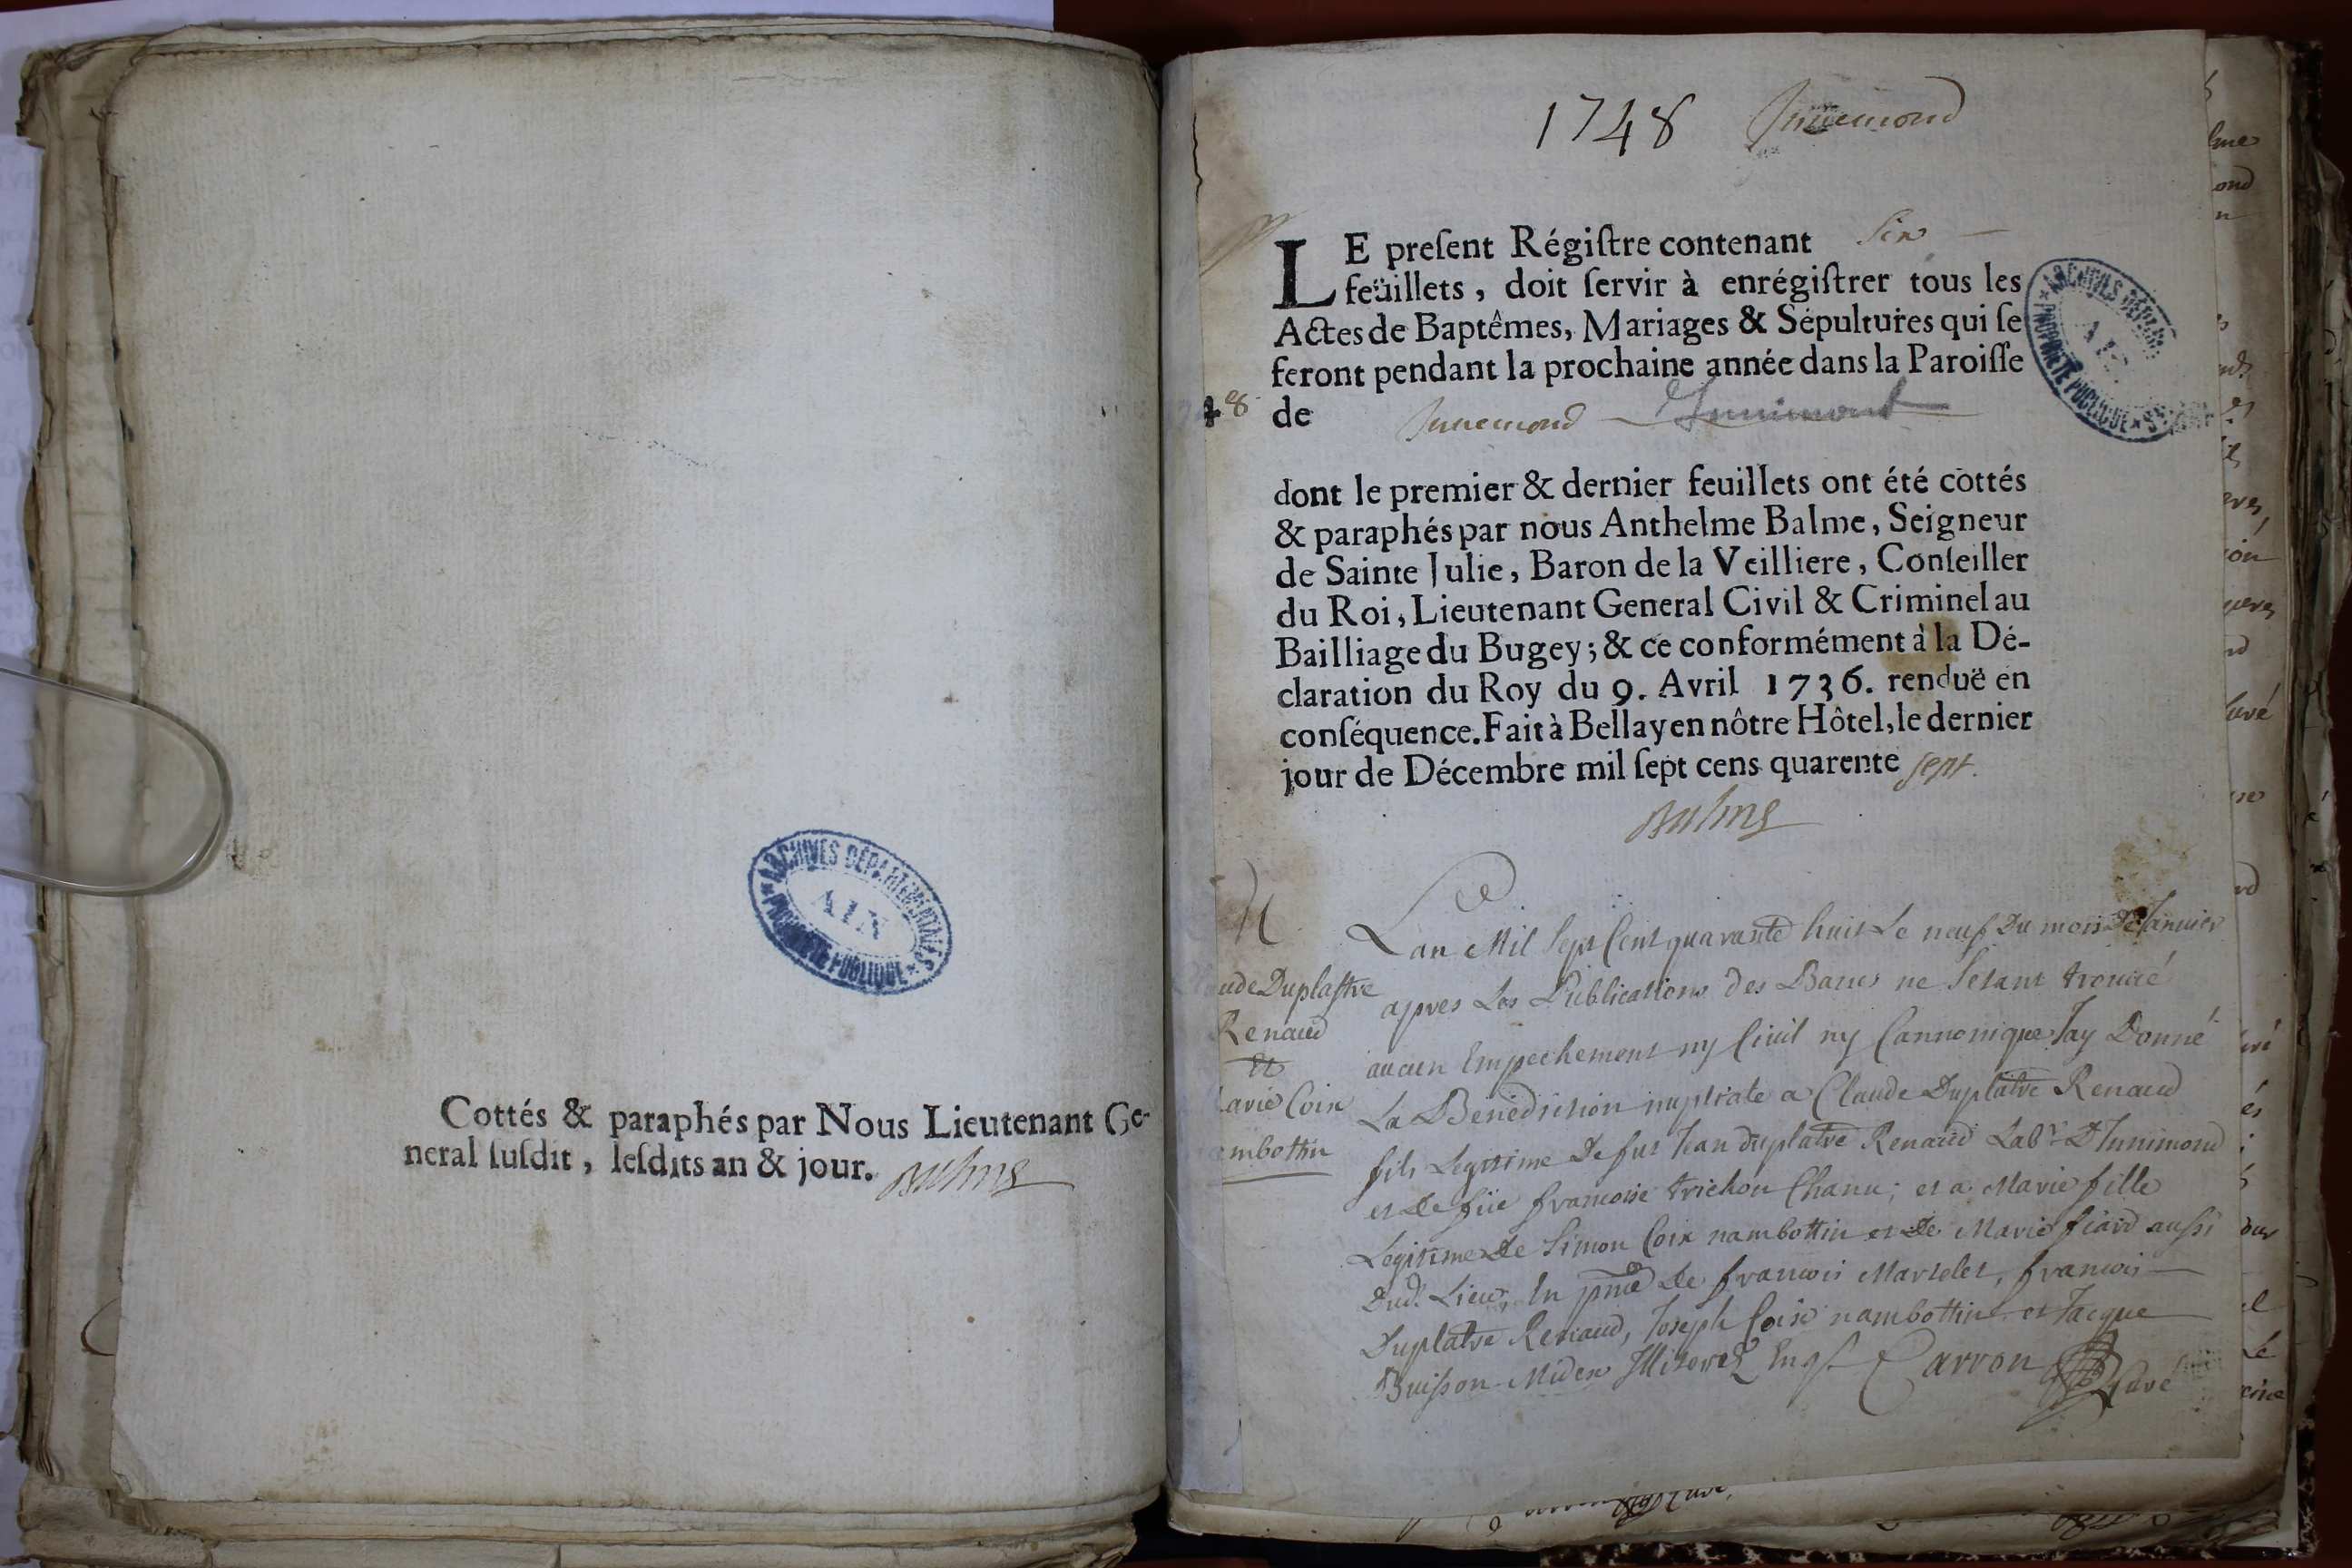 ARCHIVES DÉPARTEMENTALES
AIN
PROPRIÉTÉ PUBLIQUE
Cottés & paraphés par Nous Lieutenant Ge-
neral ſuſdit, leſdits an & jour. Balme
1748 Innemond
LE preſent Régiſtre contenant Six
feüillets, doit ſervir à enrégiſtrer tous les
Actes de Baptêmes, Mariages & Sépultures qui ſe
feront pendant la prochaine année dans la Paroiſſe
de Innemond Innimont
ARCHIVES DÉPART
AIN
PROPRIÉTÉ PUBLIQUE
48
dont le premier & dernier feuillets ont été cottés
& paraphés par nous Anthelme Balme, Seigneur
de Sainte Julie, Baron de la Veilliere, Conſeiller
du Roi, Lieutenant General Civil & Criminel au
Bailliage du Bugey; & ce conformément à la Dé-
claration du Roy du 9. Avril 1736. renduë en
conſéquence. Fait à Bellay en nôtre Hôtel, le dernier
jour de Décembre mil ſept cens quarente sept.
Balme
M
ude Duplastre
Renaud
Et
arie Coix
mbottin
L'an Mil Sept Cent quarante huit Le neuf Du mois De Janvier
apres Les Publications des Bancs ne setant trouué
aucun Empechement ny Ciuil ny Cannonique Jay Donné
La Benediction nuptiale a Claude Duplatre Renaud
fils Legitime De fut Jean duplatre Renaud Labr. D'Innimond
et De füe francoise trichon Chanu; et a Marie fille
Legitime De Simon Coix nambottin et De Marie fiard aussi
Dud. Lieu, En pnce De francois Martelet, francois
Duplatre Renaud, Joseph Coix nambottin et Jacque
Buisson Midex Illiterez Carron Curé